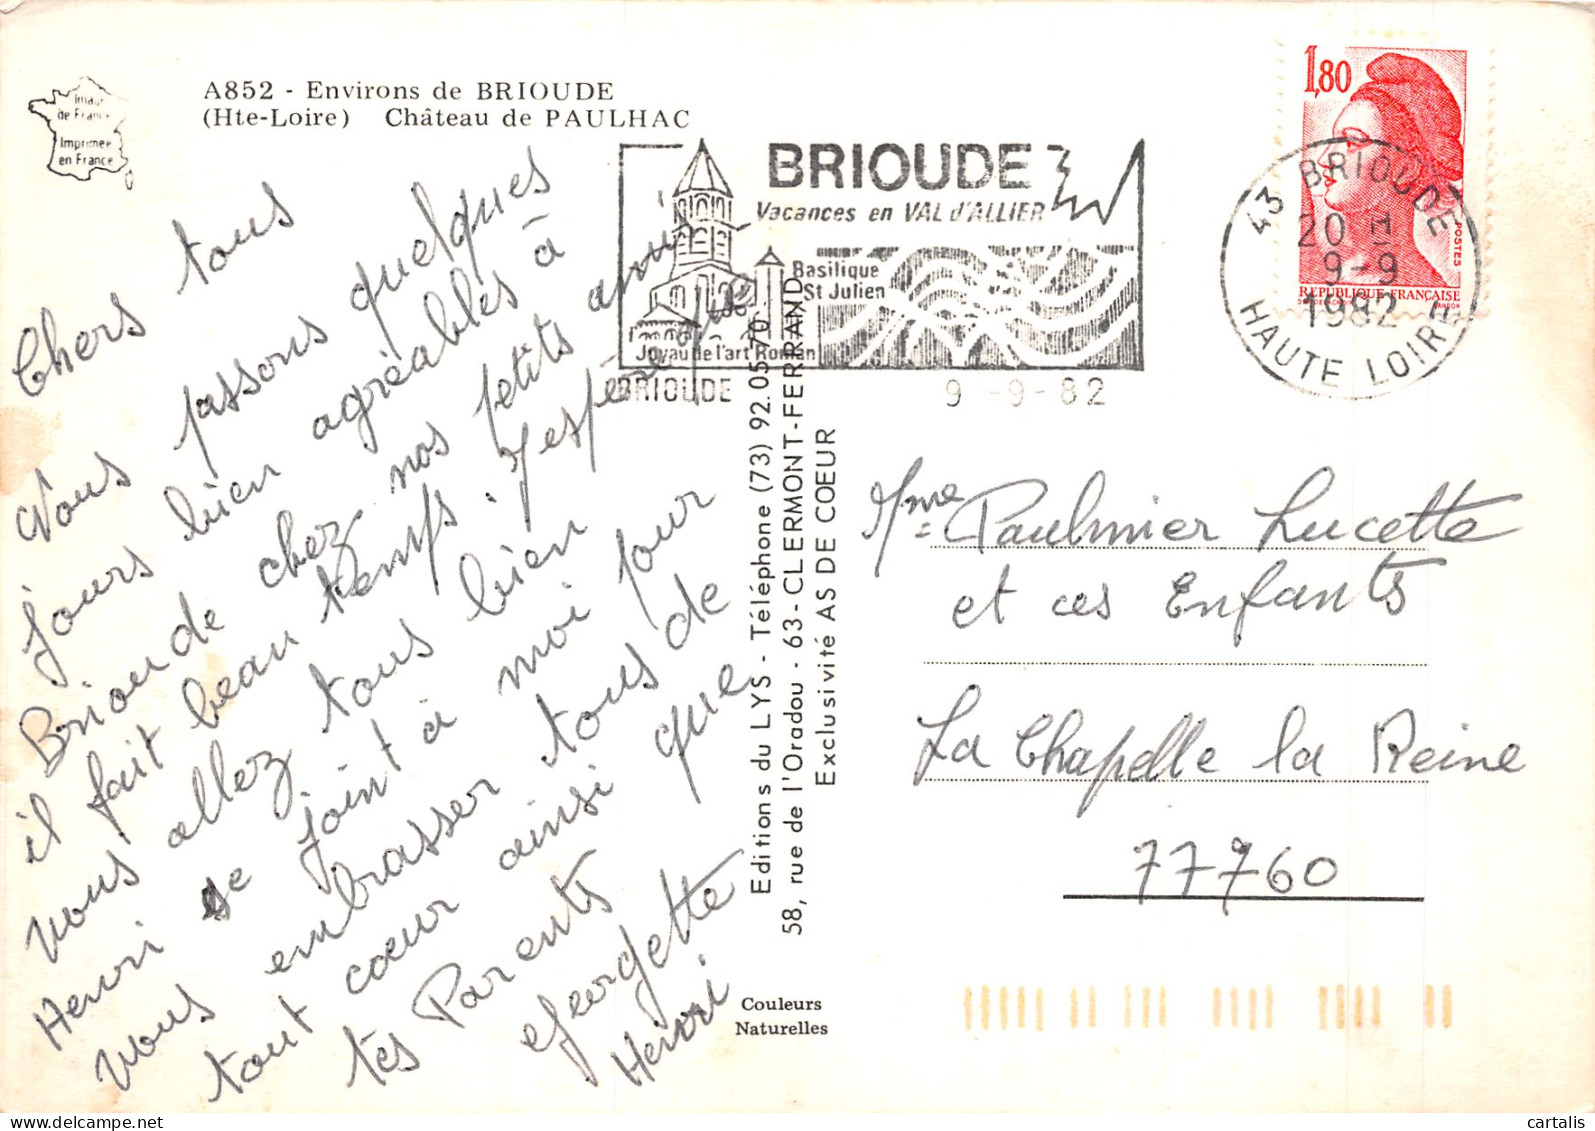 Image
de France
Imprimée
en France
A852 - Environs de BRIOUDE
(Hte-Loire) Château de PAULHAC
BRIOUDE
Vacances en VAL d'ALLIER
Basilique
St Julien
Joyau de l'art Roman
BRIOUDE
9 -9-82
1,80
POSTES
REPUBLIQUE FRANÇAISE
43 BRIOUDE
20 H
9-9
1982
HAUTE LOIRE
Chers tous
Nous passons quelques
jours bien agréables à
Brioude chez nos petits amis
il fait beau temps. J'espère que
vous allez tous bien
Henri se joint à moi pour
vous embrasser tous de
tout cœur ainsi que
tes Parents
Georgette
Henri
Editions du LYS - Téléphone (73) 92.05.70
58, rue de l'Oradou - 63 - CLERMONT-FERRAND
Exclusivité AS DE COEUR
Couleurs
Naturelles
Mme Paulmier Lucette
et ces Enfants
La Chapelle la Reine
77760
cartalis